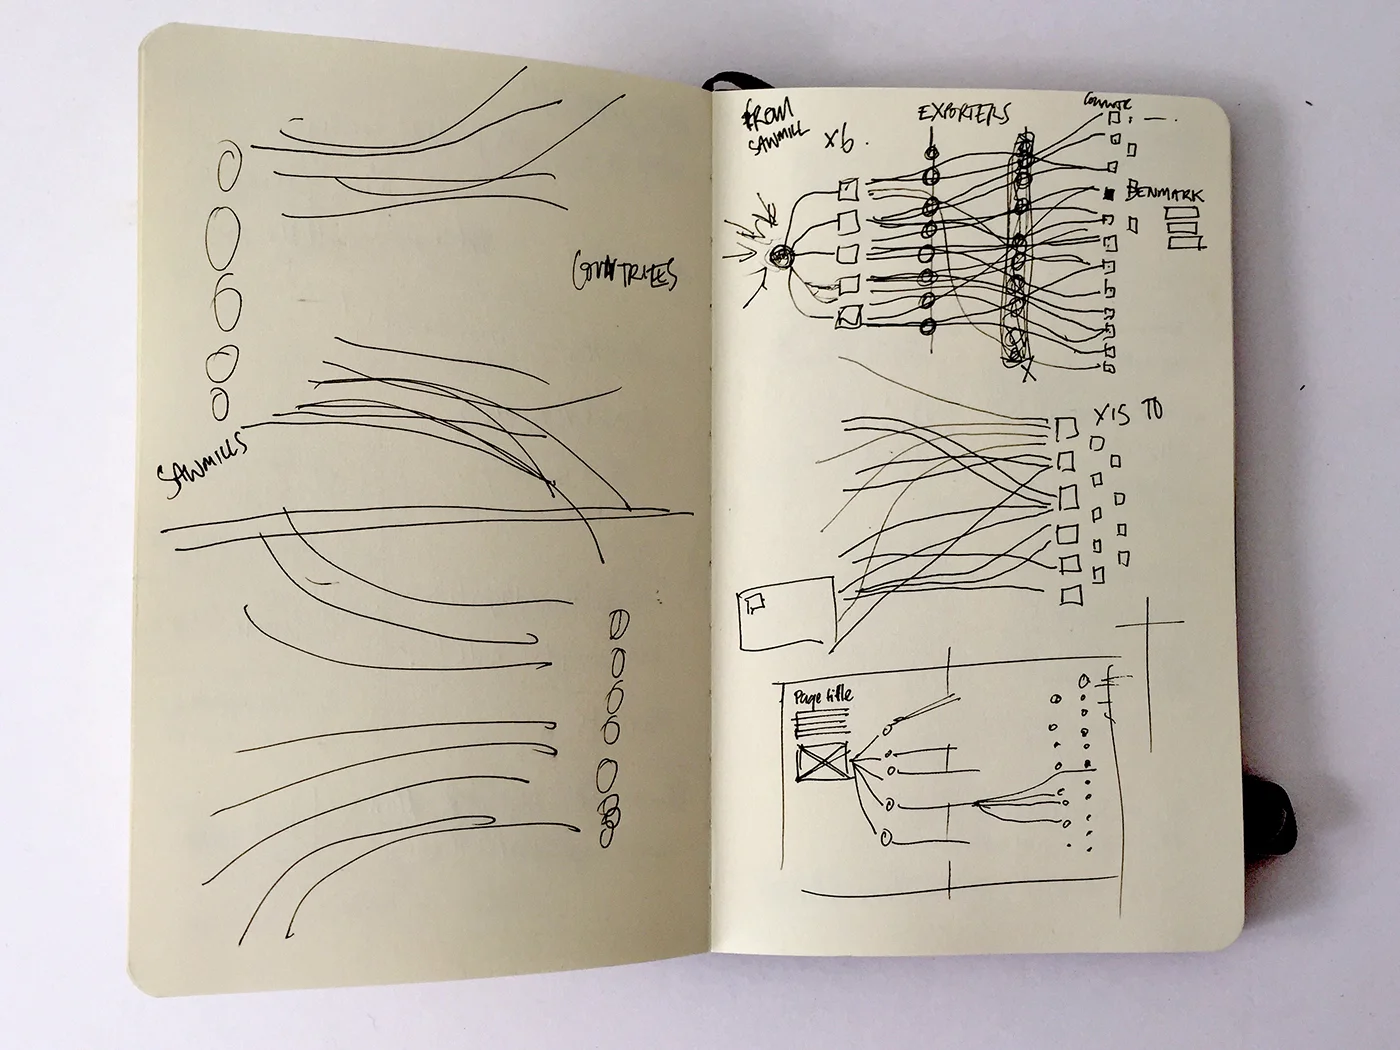 COUNTRIES
SAWMILLS
FROM
SAWMILL
x6.
EXPORTERS
DENMARK
x15 TO
Page title